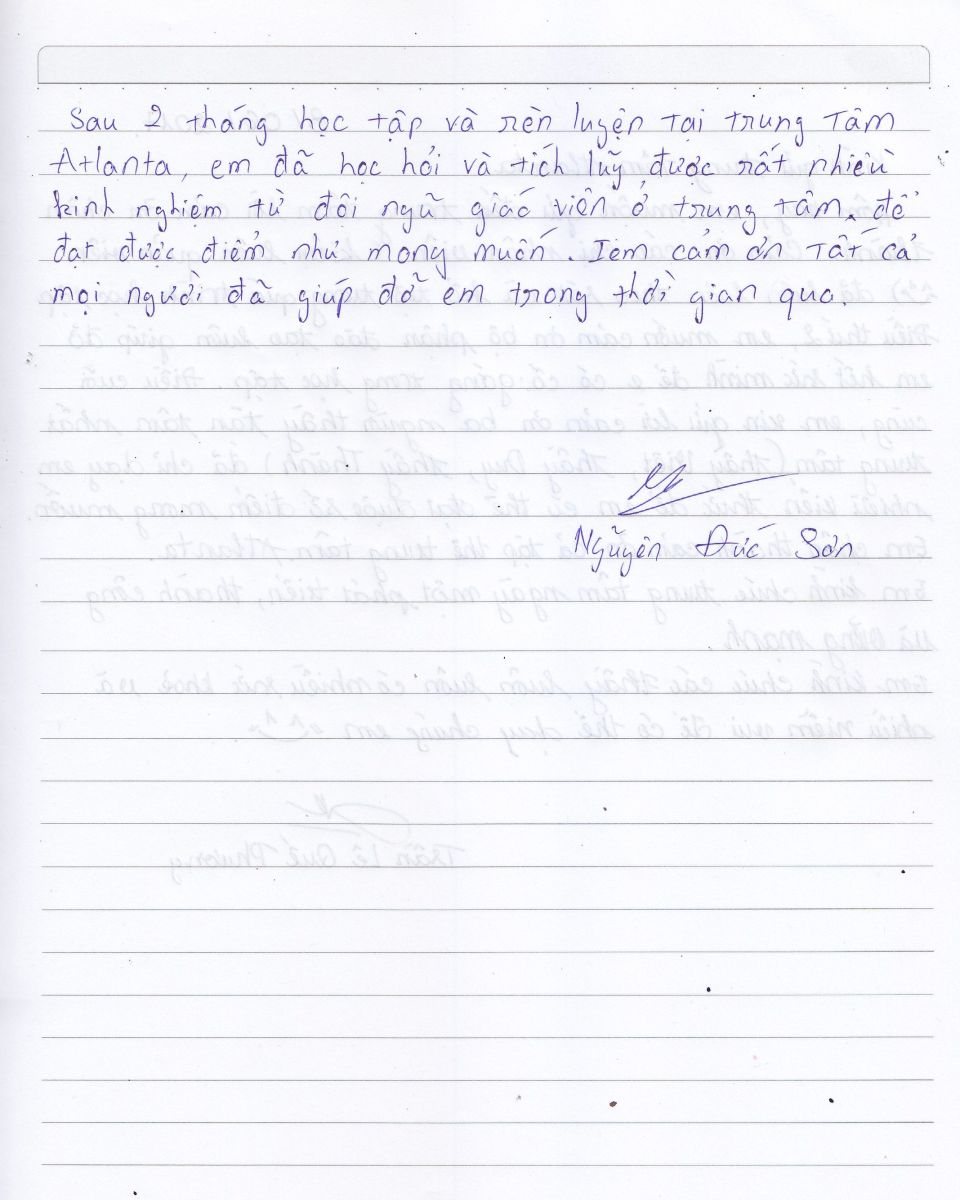 Sau 2 tháng học tập và rèn luyện tại trung tâm
Atlanta, em đã học hỏi và tích luỹ được rất nhiều
kinh nghiệm từ đội ngũ giáo viên ở trung tâm để
đạt được điểm như mong muốn. Iem cảm ơn tất cả
mọi người đã giúp đỡ em trong thời gian qua.
Nguyễn Đức Sơn